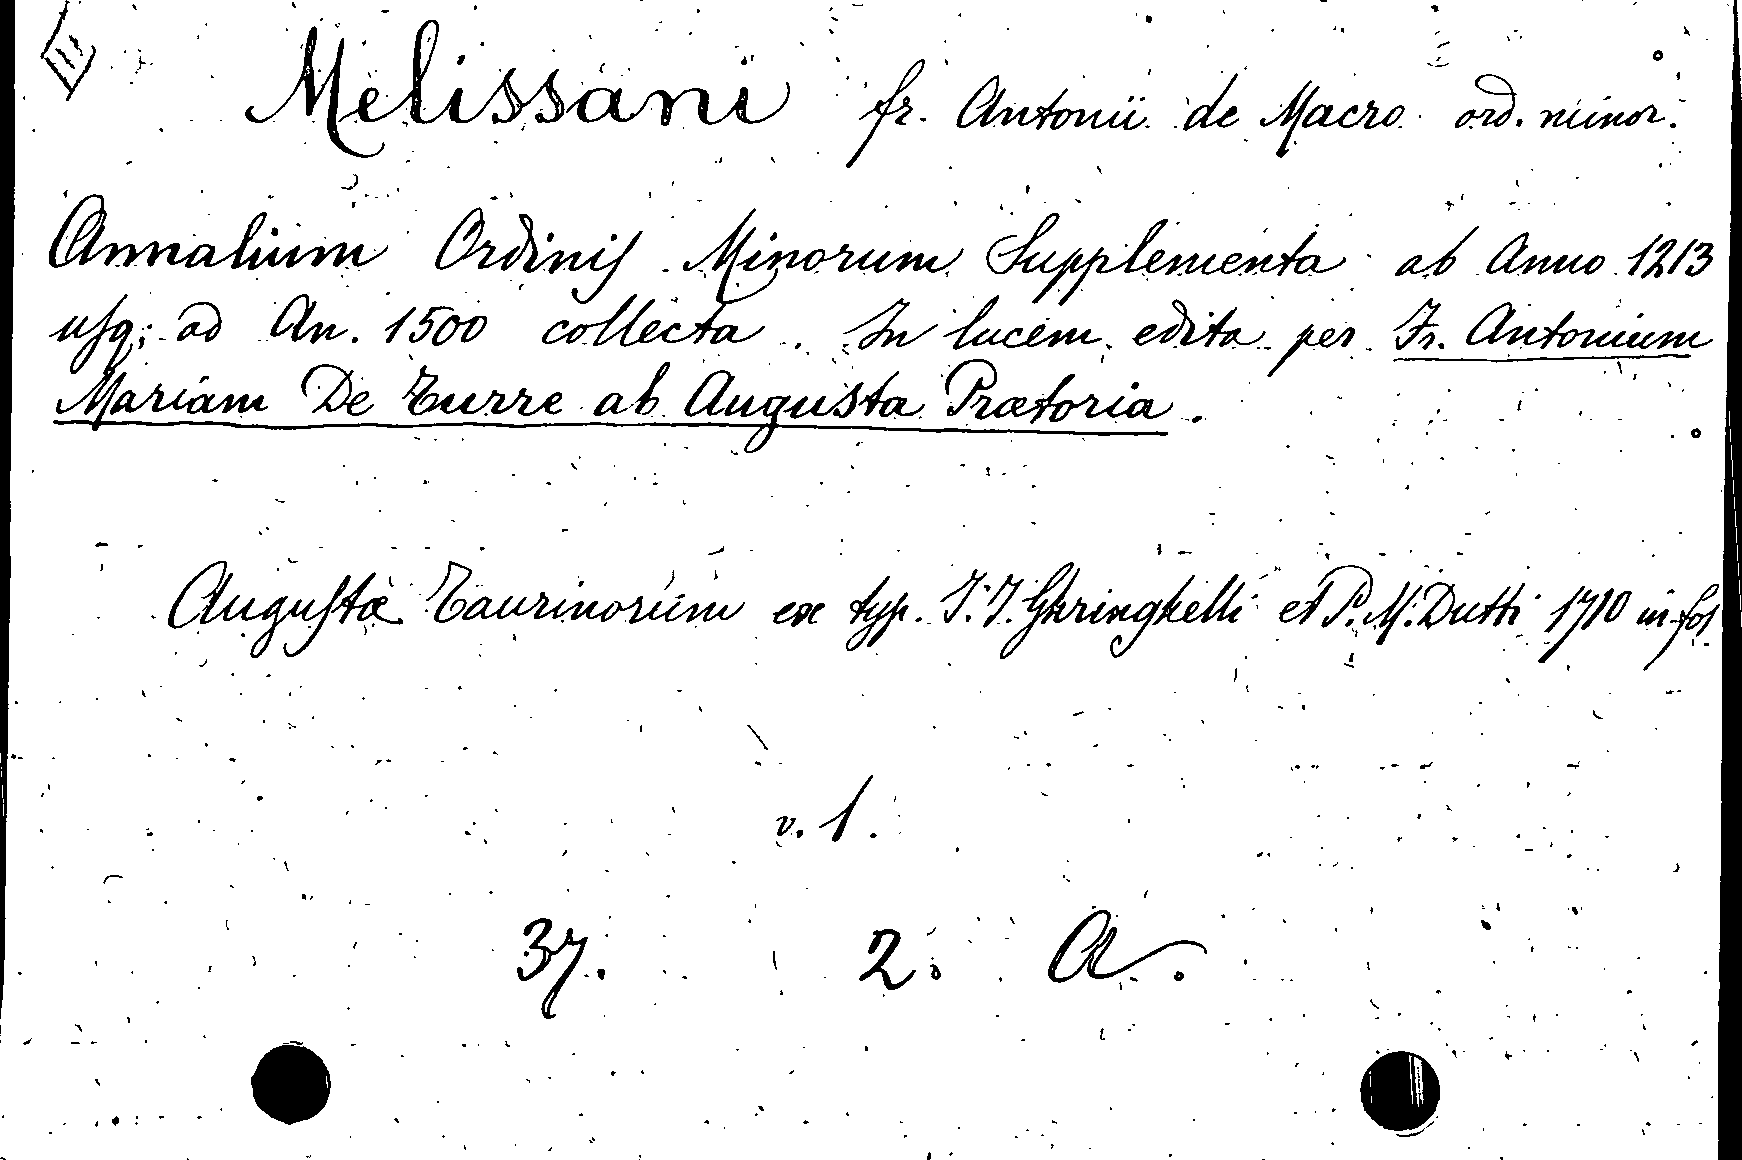 Melissani fr. Antonii de Macro ord. minor.
Annalium Ordinis Minorum Supplementa ab Anno 1213
usq: ad An. 1500 collecta. In lucem edita per Fr. Antonium
Mariam De Turre ab Augusta Prætoria.
Augustæ Taurinorum ex typ. J. J. Ghringhelli et P. M. Dutti 1710 in fol.
v. 1.
37. 2. A.